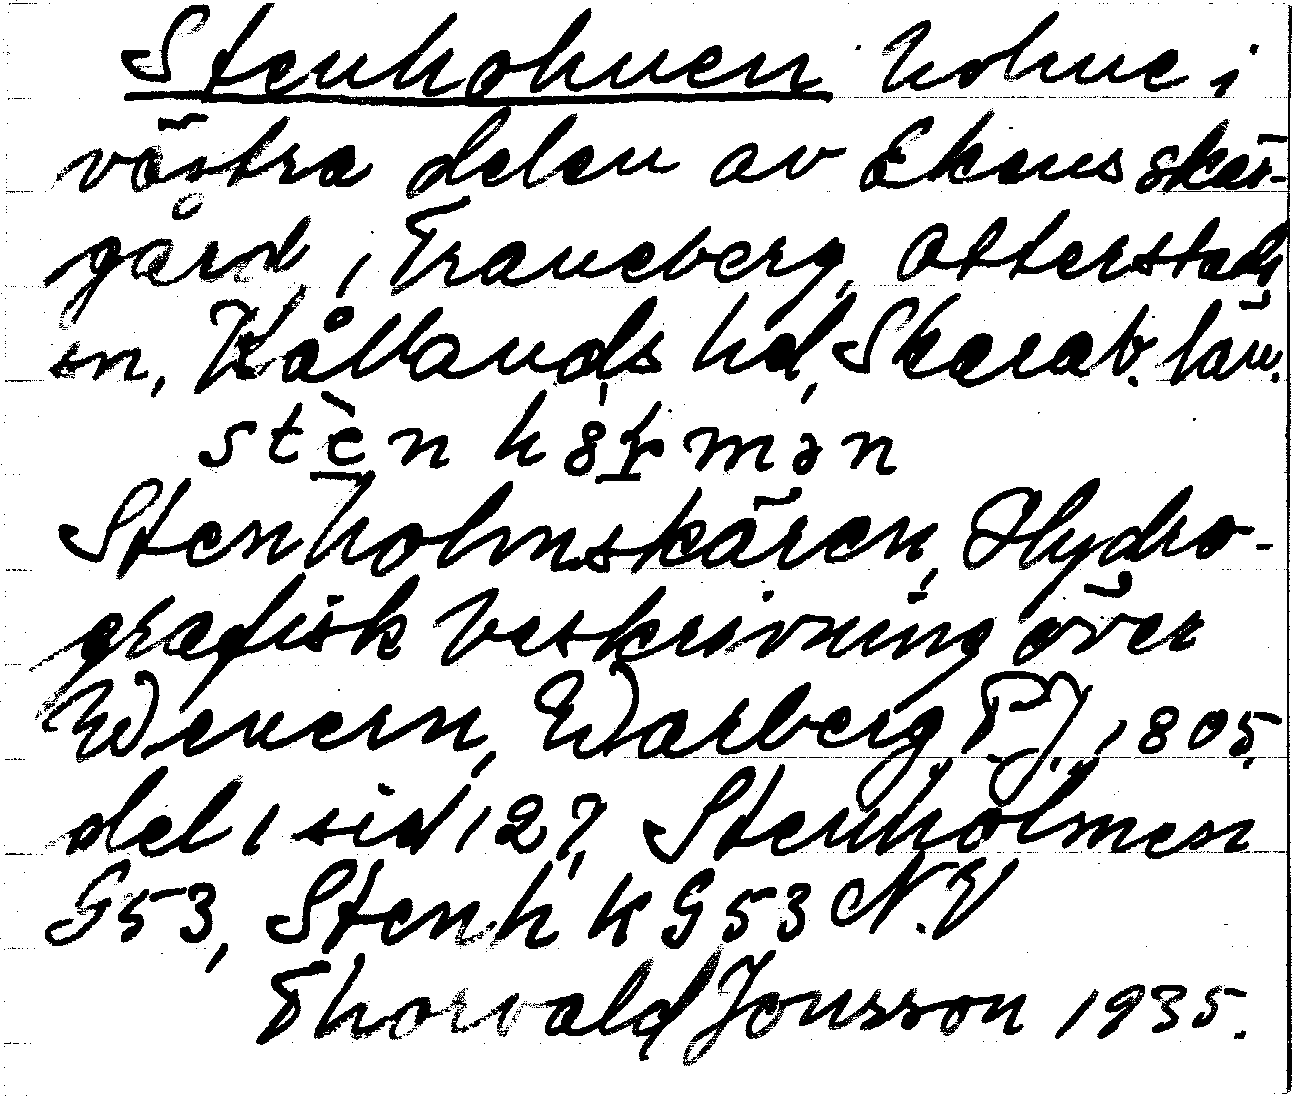 Stenholmen holme i
västra delen av Ekens skär-
gård, Traneberg, Otterstads
sn, Kållands hd, Skarab. län.
stèn hå̀ɫmən
Stenholmskären, Hydro-
grafisk beskrivning över
Wenern, Warberg P.J., 1805.
del 1 sid 127, Stenholmen
G53, Stenh k G53 N.V
Thorvald Jonsson 1935.